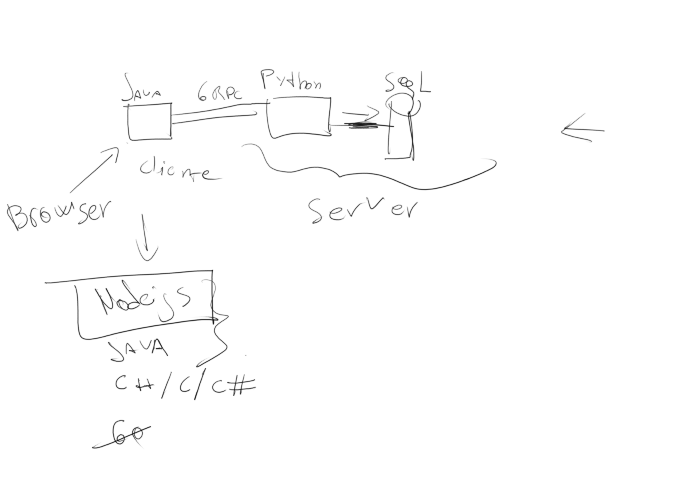 JAVA GRPC Python SQL
cliente
Browser
Server
Nodejs
JAVA
C++/C/C#
Go